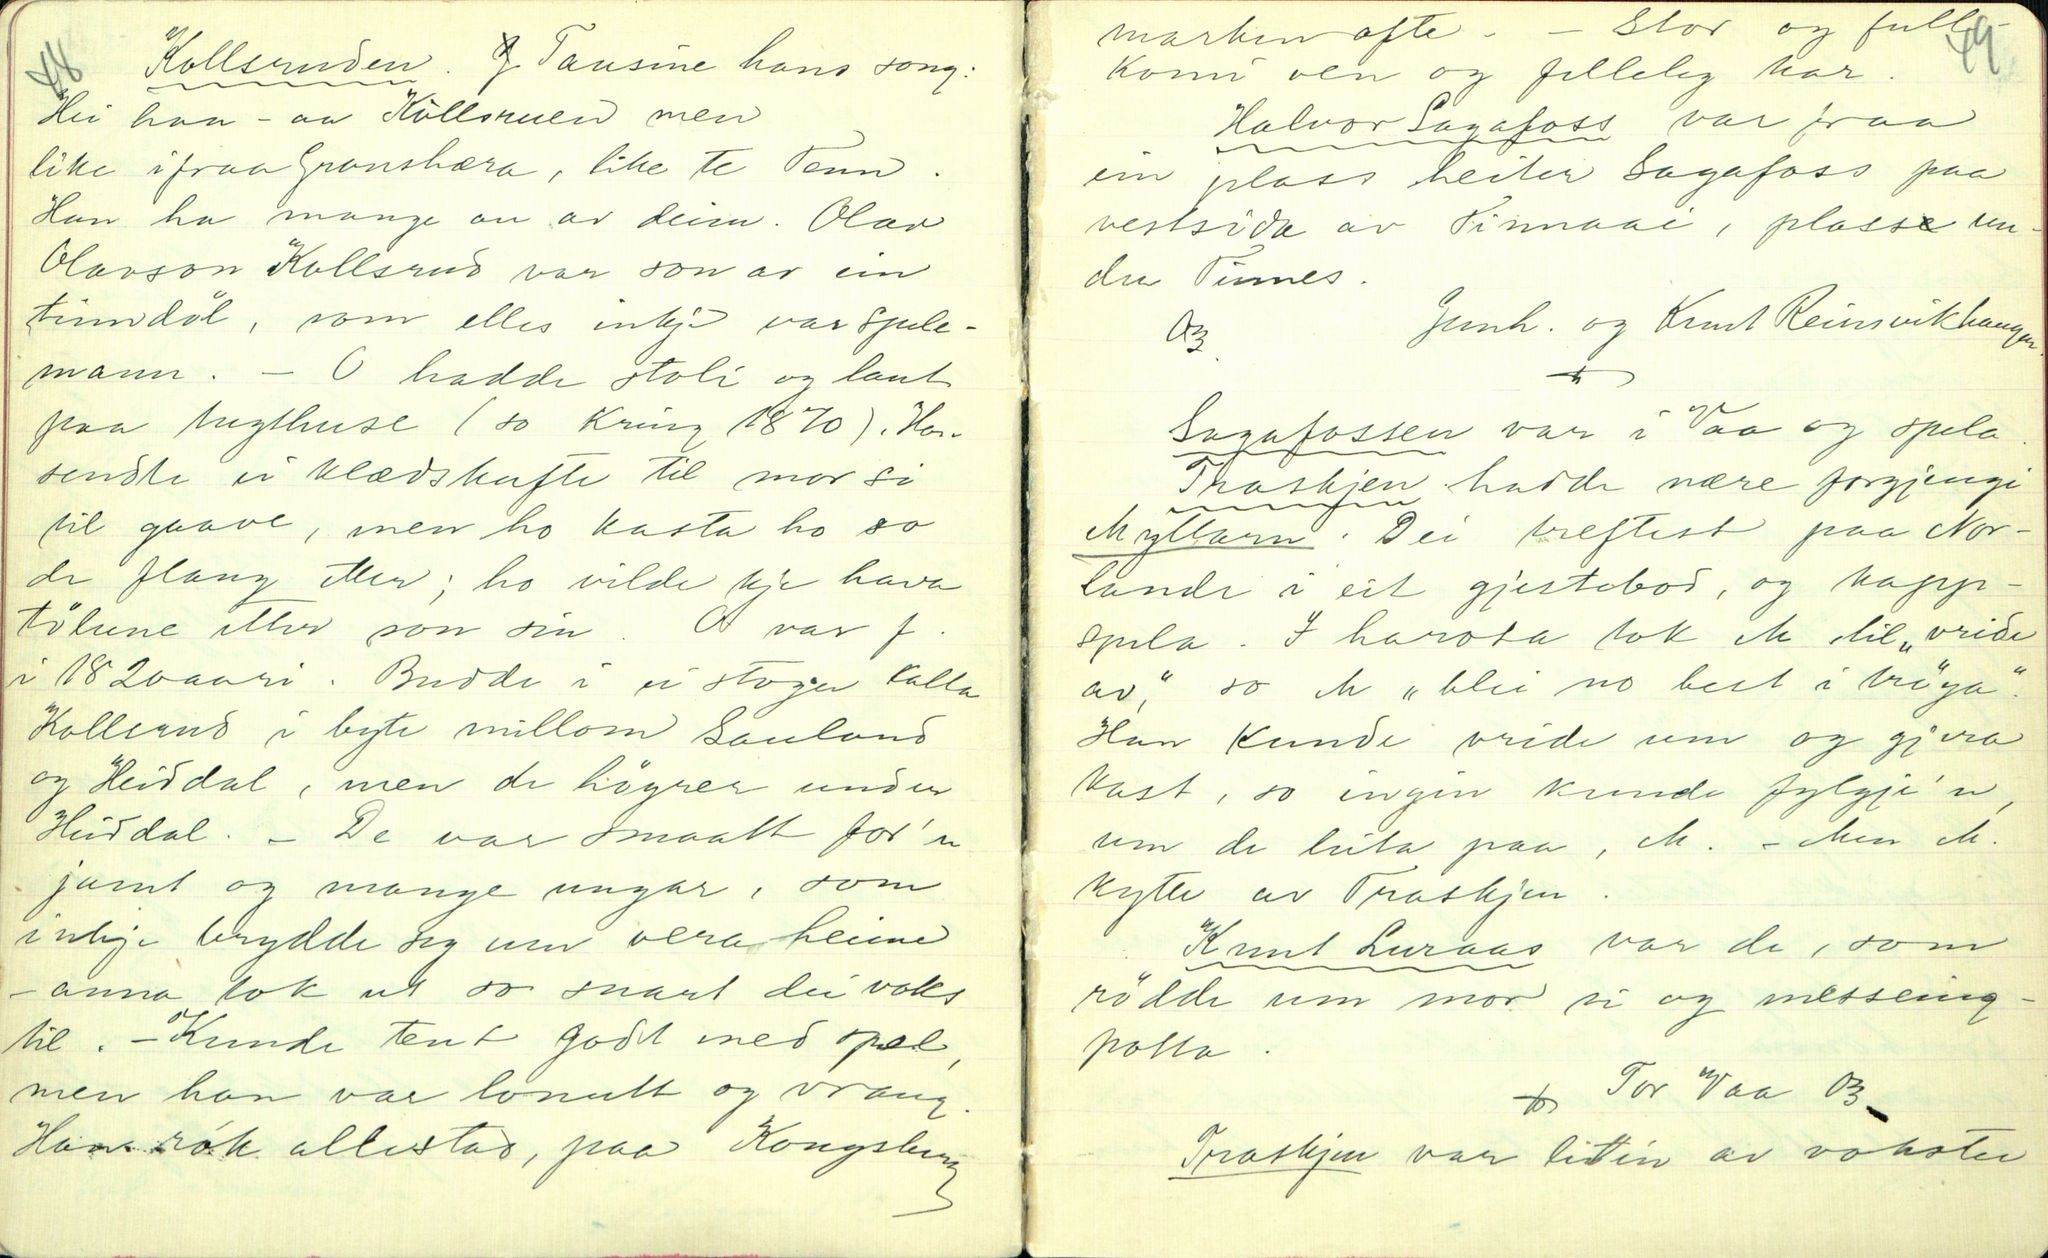 48
Kollsruden. Tausine hans song:
Hei haa - aa Kollsruen men
like ifraa Granshera, like te Tenn.
Han ha mange an av deim. Olav
Olavson Kollsrud var son av ein
tinndöl, som elles inkje var spele-
mann. - O hadde stoli og laut
paa tugthuse (so kring 1870). Han
sendte ei klædskufte til mor si
til gaave, men ho kasta ho so
de flang etter; ho vilde kje hava
tölune etter son sin. O var f.
i 1820 aari. Budde i ei stoge kalla
Kollsrud i byte millom Sauland
og Heiddal, men de högrer under
Heiddal. - De var smaatt for'n
jamt og mange ungar, som
inkje brydde seg um vera heime
- anna tok ut so snart dei voks
til. - Kunde tent godt med spel,
men han var lonutt og vrang.
Han rök allestad, paa Kongsberg
49
marken ofte. - Stor og full-
komi ven og jilleleg kar.
Halvor Sagafoss var fraa
ein plass heiter Sagafoss paa
vestsida av Tinnaai, plass un-
der Tinnes.
Gunh. og Knut Reinsvikhaugen.
OB.
Sagafossen var i Vaa og spela.
Traskjen hadde nære forgjengi
Myllarn. Dei treftest paa Nor-
lande i eit gjestebod, og kapp-
spela. I harosta tok M til "vride
av," so M "blei no best i tröga".
Han kunde vride um og gjera
kast, so ingin kunde fylgje'n,
um de leita paa, M. - Men M.
kytte av Traskjen.
Knut Luraas var de, som
rödde um mor si og messeing-
potta.
Tor Vaa OB
Traskjen var litin av vokster